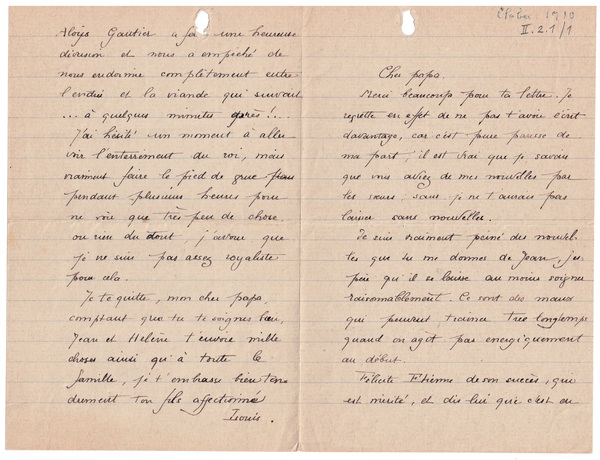 1910
II.2.1/1
Cher papa.
Merci beaucoup pour ta lettre. Je
regrette en effet de ne pas t'avoir écrit
davantage, car c'est pure paresse de
ma part; il est vrai que je savais
que vous aviez de mes nouvelles par
les sœurs; sans je ne t'aurais pas
laissé sans nouvelles.
Je suis vraiment peiné des nouvel-
les que tu me donnes de Jean, j'es-
père qu'il se laisse au moins soigner
raisonnablement. Ce sont des maux
qui peuvent traîner très longtemps
quand on agit pas énergiquement
au début.
Félicite Etienne de son succès, qui
est mérité, et dis lui que c'est du
Aloÿs Gautier a fait une heureuse
division et nous a empêché de
nous endormir complètement entre
l'endive et la viande qui suivait
... à quelques minutes après!...
J'ai hésité un moment à aller
voir l'enterrement du roi, mais
vraiment faire le pied de grue
pendant plusieurs heures pour
ne voir que très peu de chose
ou rien du tout, j'avoue que
je ne suis pas assez royaliste
pour cela.
Je te quitte, mon cher papa,
comptant que tu te soignes bien,
Jean et Helène t'envoie mille
choses ainsi qu'à toute la
famille, je t'embrasse bien ten
drement ton fils affectionné
Louis.